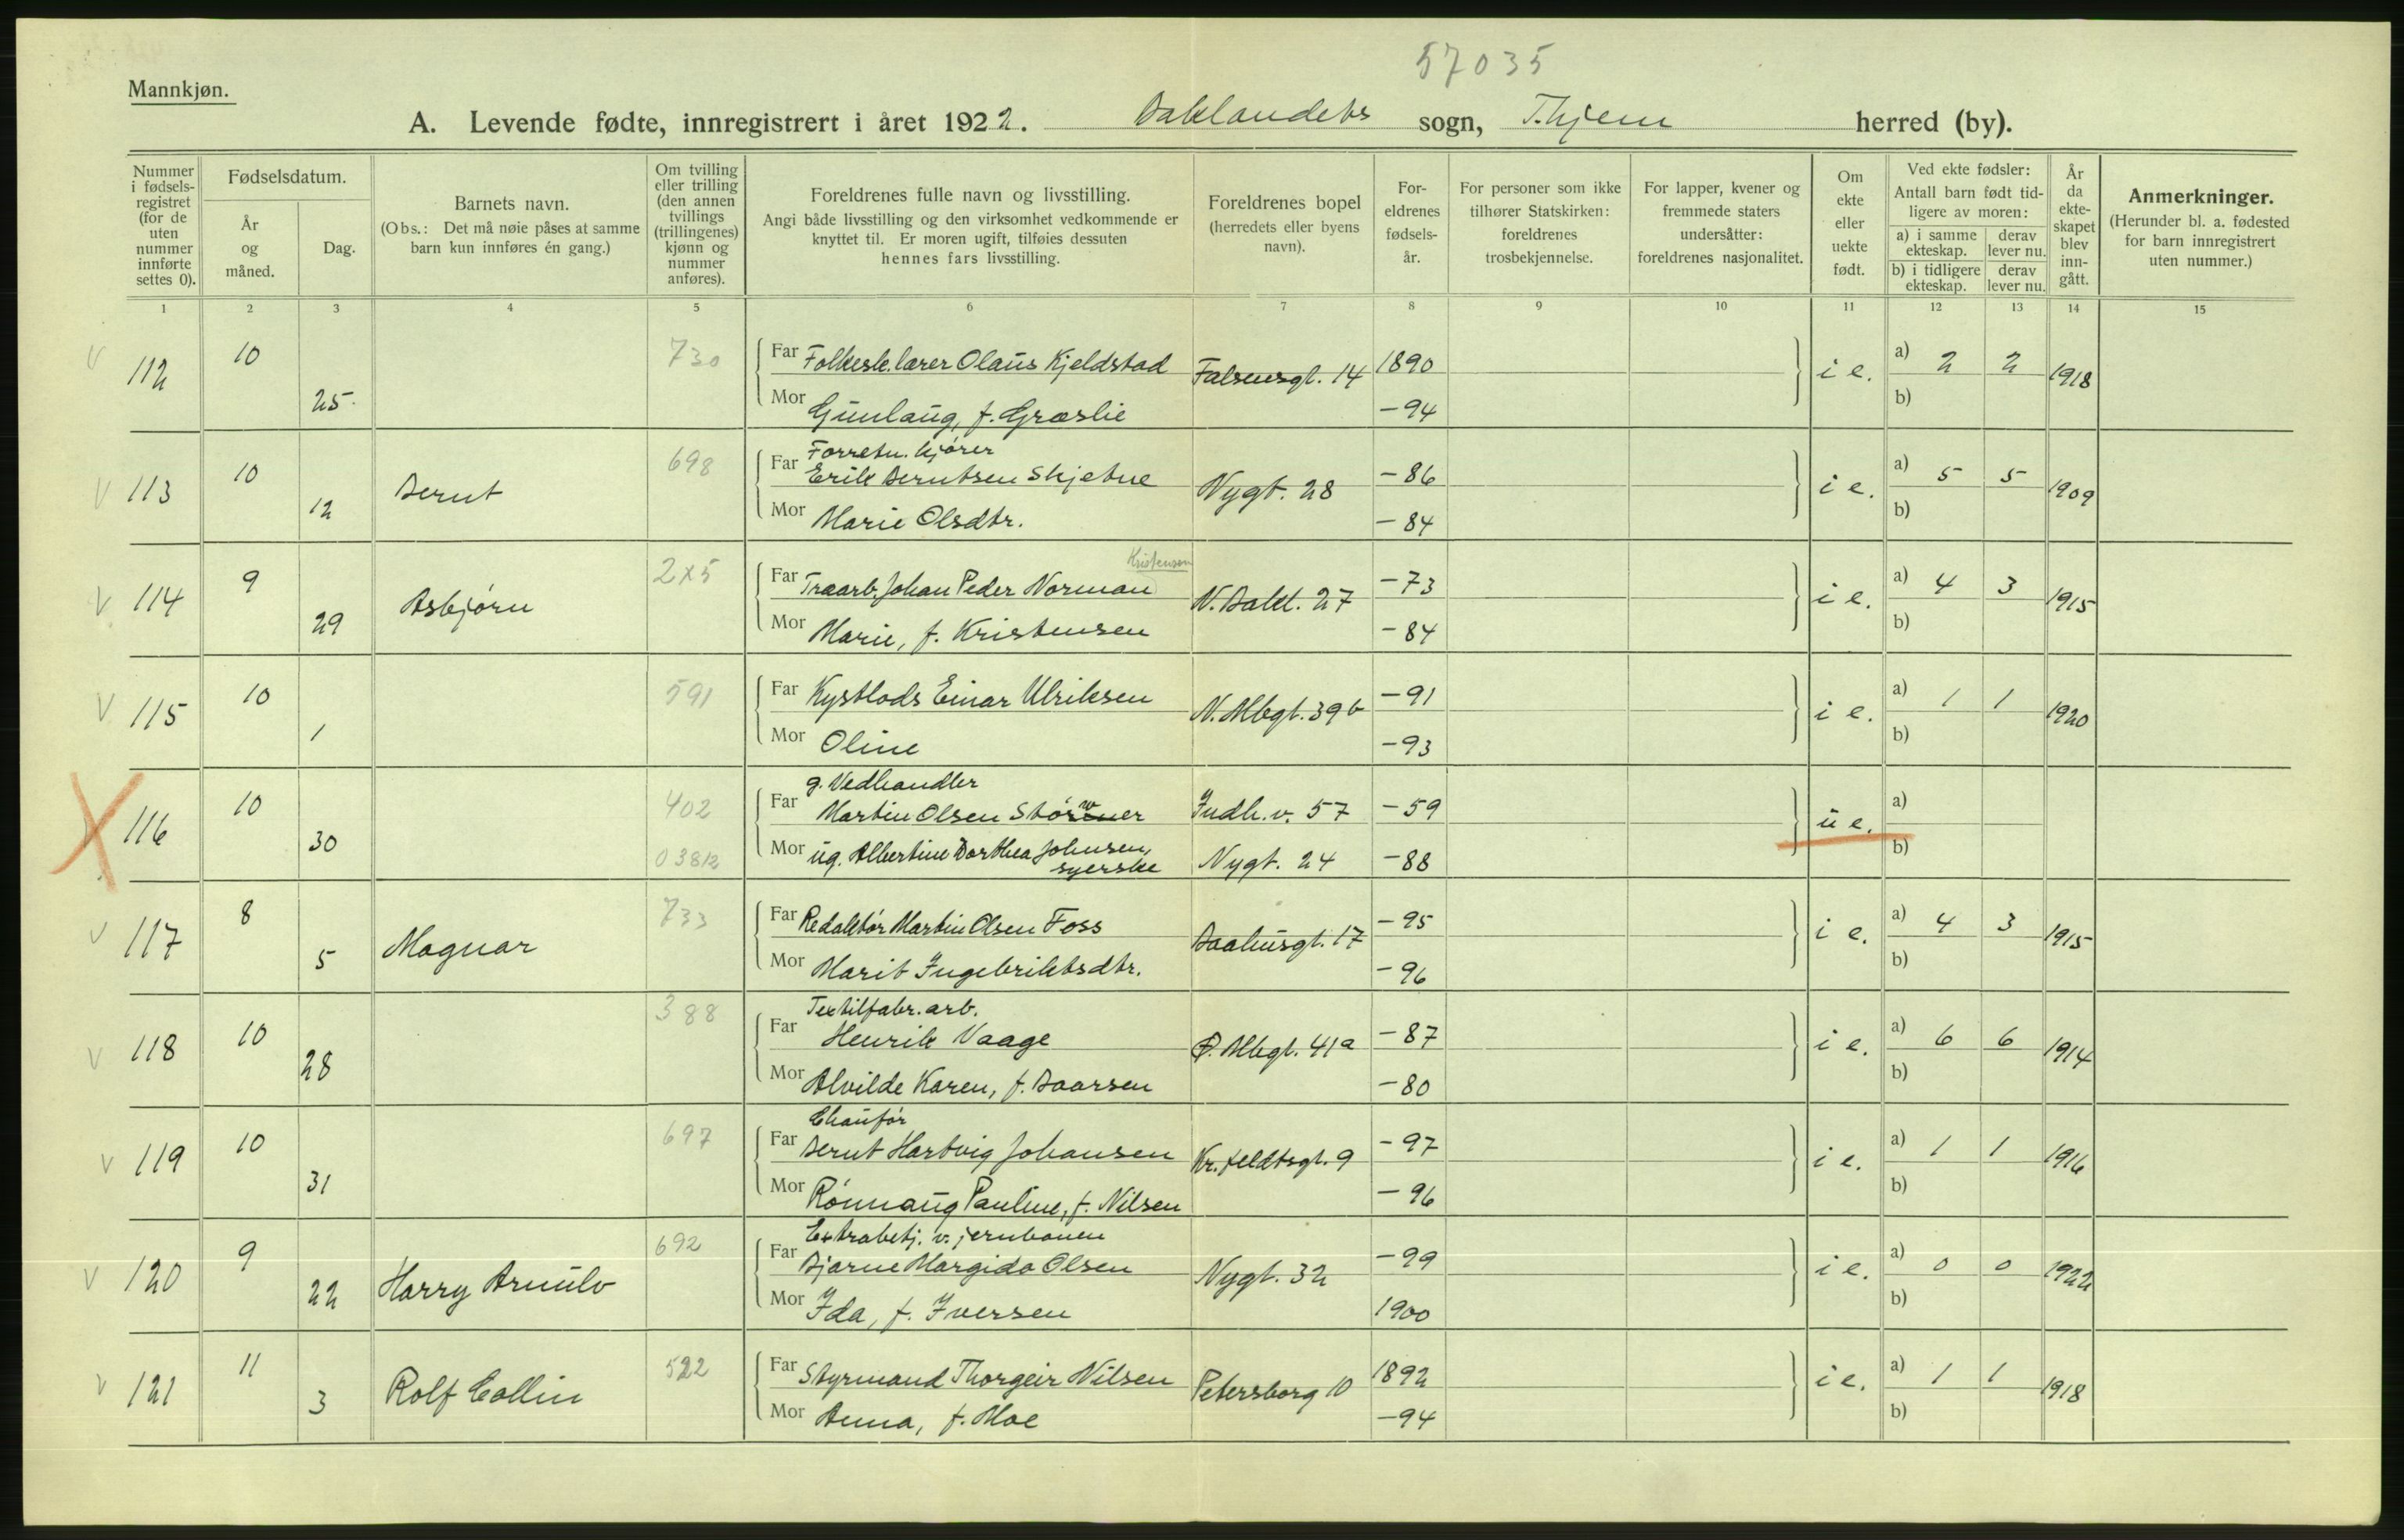 57035
Mannkjøn.
A. Levende fødte, innregistrert i året 1922. Baklandets sogn, T.hjem herred (by).
Nummer i fødselsregistret (for de uten nummer innførte settes 0).
Fødselsdatum.
År og måned.
Dag.
Barnets navn.
(Obs.: Det må nøie påses at samme barn kun innføres én gang.)
Om tvilling eller trilling (den annen tvillings (trillingenes) kjønn og nummer anføres).
Foreldrenes fulle navn og livsstilling.
Angi både livsstilling og den virksomhet vedkommende er knyttet til. Er moren ugift, tilføies dessuten hennes fars livsstilling.
Foreldrenes bopel (herredets eller byens navn).
Foreldrenes fødselsår.
For personer som ikke tilhører Statskirken: foreldrenes trosbekjennelse.
For lapper, kvener og fremmede staters undersåtter: foreldrenes nasjonalitet.
Om ekte eller uekte født.
Ved ekte fødsler: Antall barn født tidligere av moren:
a) i samme ekteskap. derav lever nu.
b) i tidligere ekteskap. derav lever nu.
År da ekteskapet blev inngått.
Anmerkninger.
(Herunder bl. a. fødested for barn innregistrert uten nummer.)
1 2 3 4 5 6 7 8 9 10 11 12 13 14 15
V 112 10 25. 730 Far Folkesk.lærer Olaus Kjeldstad Falsensgt. 14 1890 i e. a) 2 2 1918
Mor Gunlaug, f. Græslie -94 b)
V 113 10 12 Bernt 698 Far Forretn. kjører
Erik Berntsen Skjetne Nygt. 28 -86 i e. a) 5 5 1909
Mor Marie Olsdtr. -84 b)
Kristensen
V 114 9 29 Asbjørn 2x5 Far Træarb. Johan Peder Norman N. Bakl. 27 -73 i e. a) 4 3 1915
Mor Marie, f. Kristensen -84 b)
V 115 10 1 591 Far Kystlods Einar Ulriksen N. Albgt. 39b -91 i e. a) 1 1 1920
Mor Oline -93 b)
X 116 10 30 402 Far g. Vedhandler
Martin Olsen Indh.v. 57 -59 u e. a)
03812 Mor ug. Albertine Dorthea Johnsen, syerske Nygt. 24 -88 b)
V 117 8 5 Magnar 733 Far Redaktør Martin Olsen Foss Baahusgt. 17 -95 i e. a) 4 3 1915
Mor Marit Ingebriktsdtr. -96 b)
V 118 10 28 388 Far Textilfabr. arb.
Henrik Vaage Ø. Albgt. 41a -87 i e. a) 6 6 1914
Mor Alvilde Karen, f. Baarsen -80 b)
V 119 10 31 697 Far Chauför
Bernt Hartvig Johansen Kr. feldtsgt. 9 -97 i e. a) 1 1 1916
Mor Rønnaug Pauline, f. Nilsen -96 b)
V 120 9 22 Harry Arnulv 692 Far Extrabetj. v. jernbanen
Bjarne Margido Olsen Nygt. 32 -99 i e. a) 0 0 1922
Mor Ida, f. Iversen 1900 b)
V 121 11 3 Rolf Collin 522 Far Styrmand Thorgeir Nilsen Petersborg 10 1892 i e. a) 1 1 1918
Mor Anna, f. Moe -94 b)